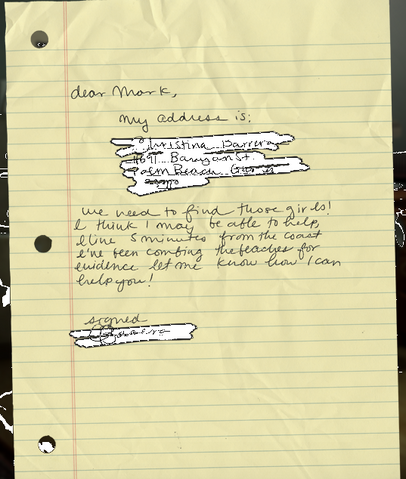 dear Mark,
My address is:
we need to find those girls!
I think I may be able to help,
I live 5 minutes from the coast
I've been combing the beaches for
evidence let me know how I can
help you!
signed